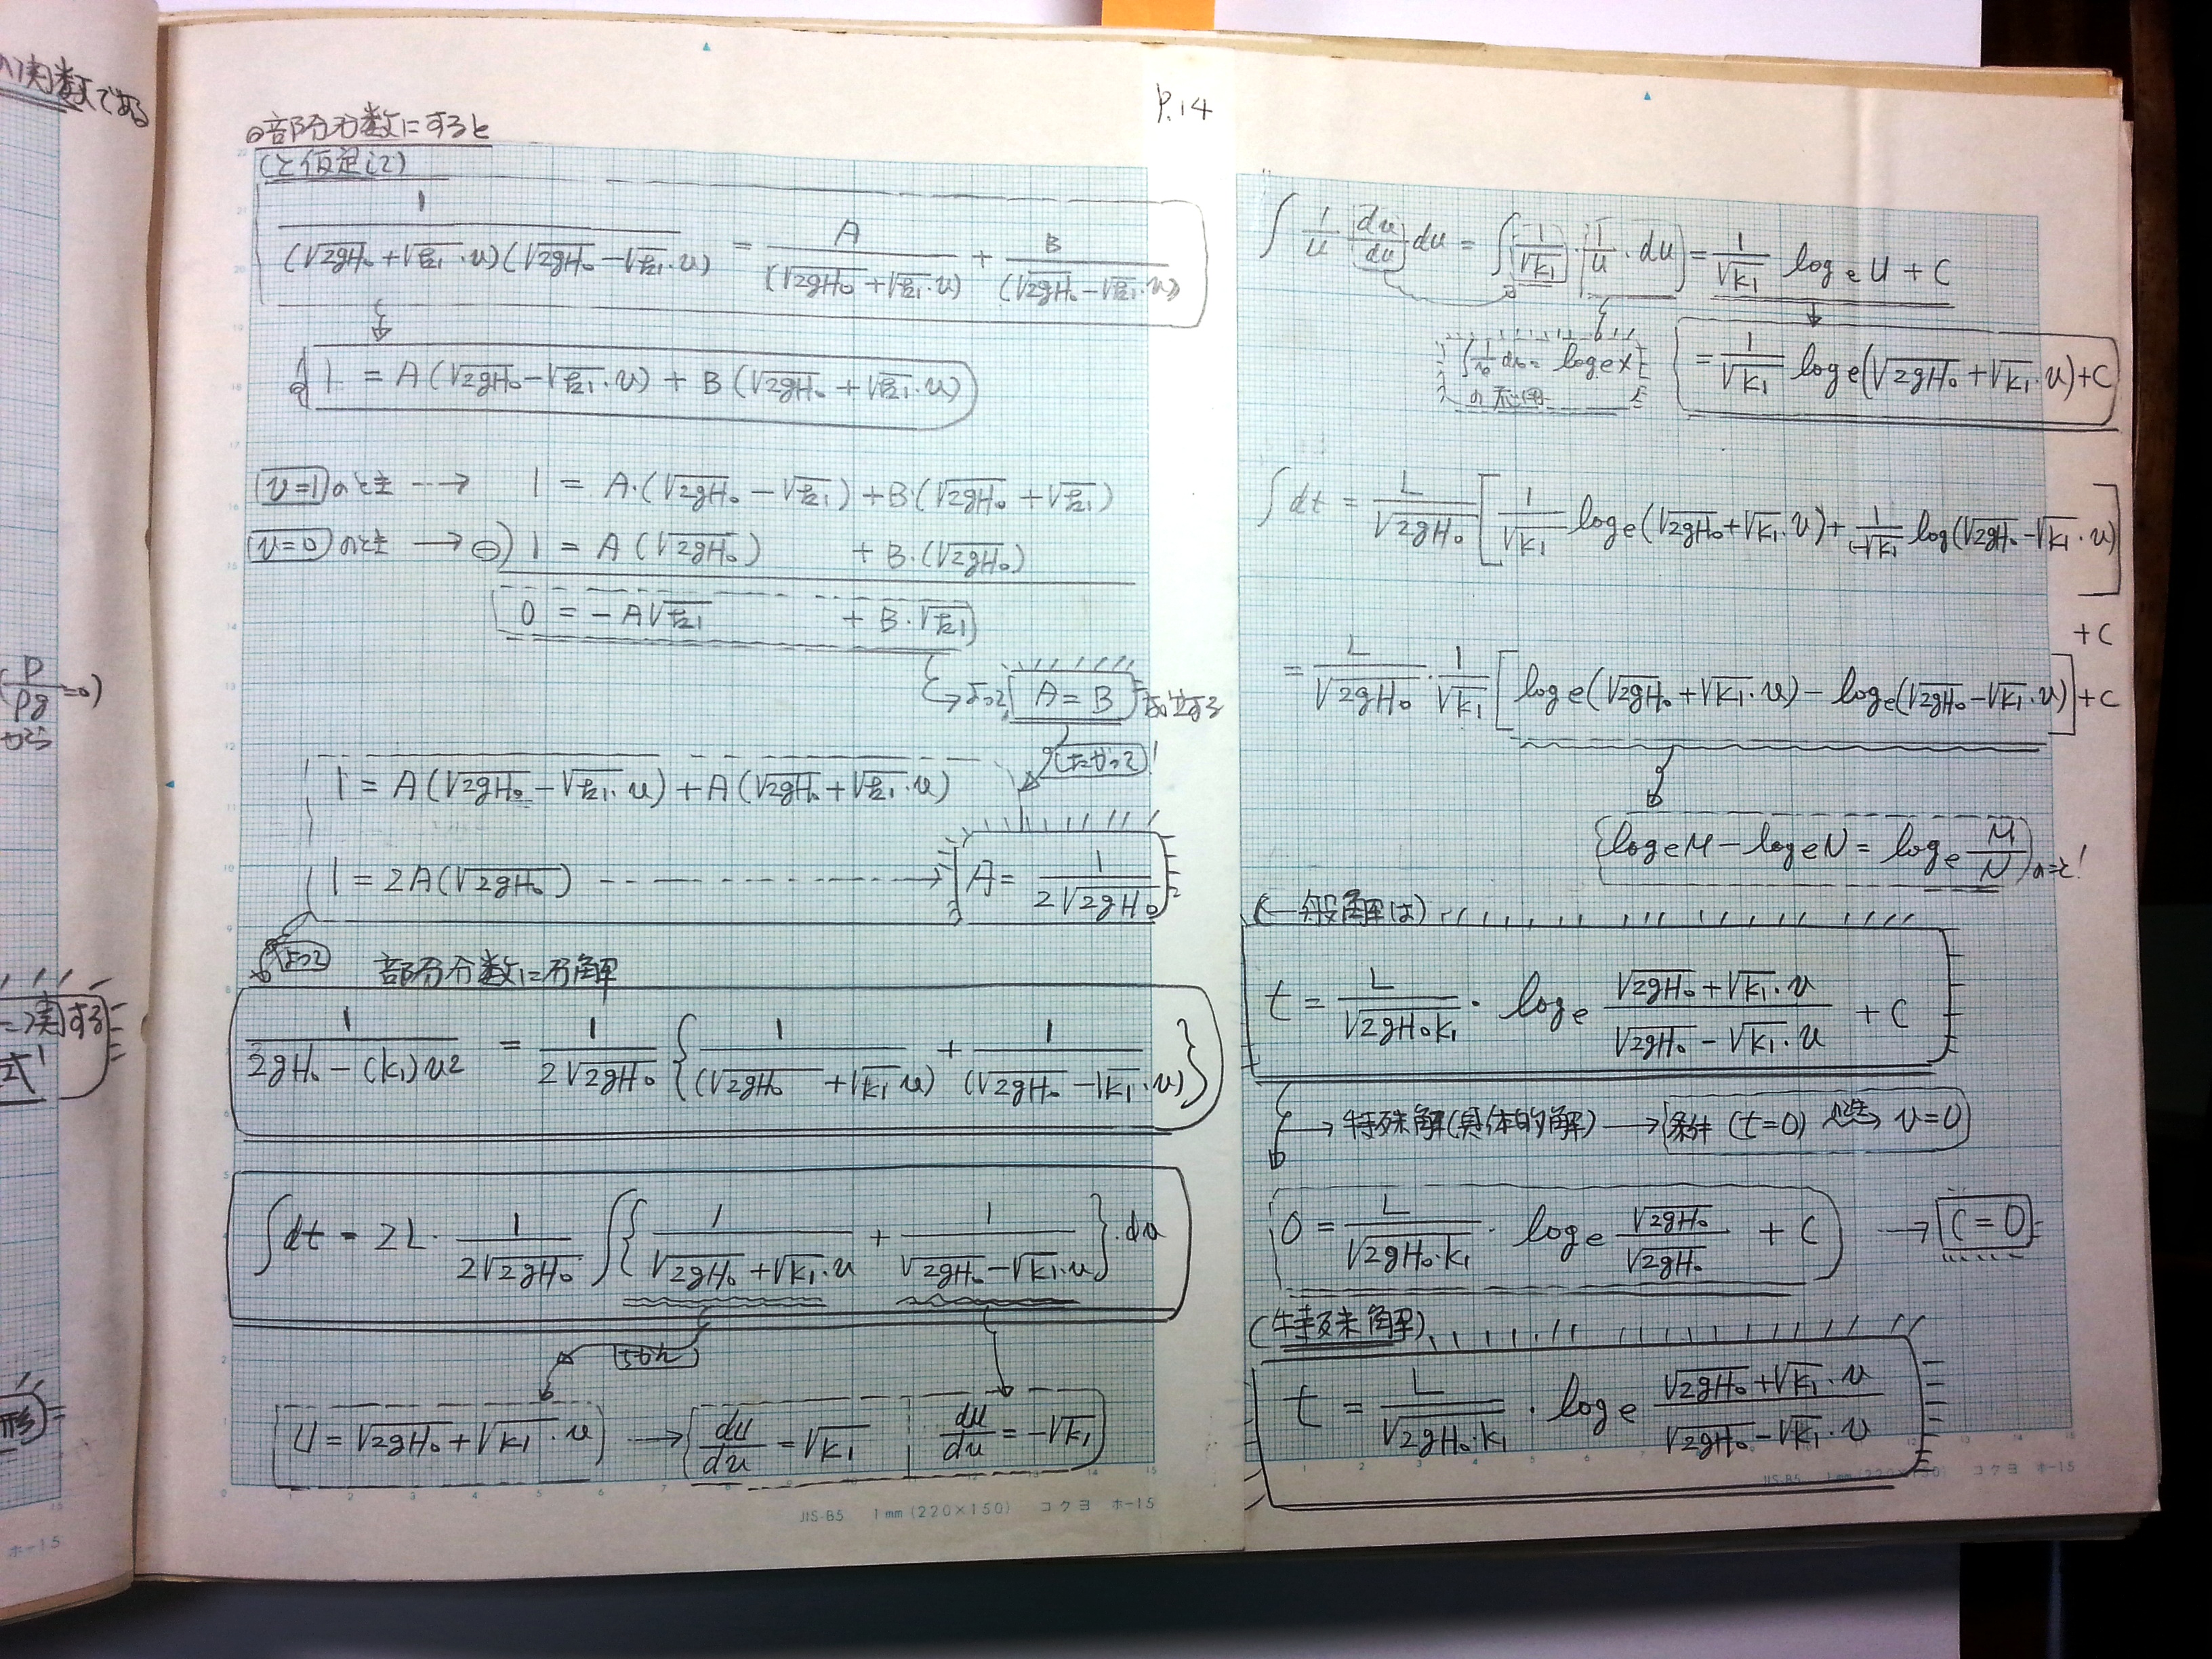 の関数である
P
ρg
=0)
から
=関する
式'
形)
ホ-15
P.14
◦部分分数にすると
(と仮定して)
1/((√2gH₀+√k₁・v)(√2gH₀-√k₁・v)) = A/(√2gH₀+√k₁・v) + B/(√2gH₀-√k₁・v)
1 = A(√2gH₀-√k₁・v) + B(√2gH₀+√k₁・v)
v=1のとき ---→ 1 = A・(√2gH₀-√k₁)+B・(√2gH₀+√k₁)
v=0のとき ―→ ⊖) 1 = A(√2gH₀) + B・(√2gH₀)
0 = -A√k₁ + B・√k₁
よって A=B が成立する
したがって!
1 = A(√2gH₀-√k₁・v)+A(√2gH₀+√k₁・v)
1 = 2A(√2gH₀) -----→ A = 1/(2√2gH₀)
よって 部分分数に分解
1/(2gH₀-(k₁)v²) = 1/(2√2gH₀) {1/(√2gH₀+√k₁v) + 1/(√2gH₀-√k₁・v)}
∫dt = 2L・1/(2√2gH₀) ∫{1/(√2gH₀+√k₁・v) + 1/(√2gH₀-√k₁・v)}・dv
U=√2gH₀+√k₁・v ―→ du/dv = √k₁ du/dv = -√k₁
JIS-B5 1mm(220×150) コクヨ ホ-15
∫ 1/u du/du du = ∫ 1/√k₁・1/u・du = 1/√k₁ logₑ U + C
∫1/x dx = logₑx
の応用
= 1/√k₁ logₑ(√2gH₀+√k₁・v)+C
∫dt = L/√2gH₀ [1/√k₁ logₑ(√2gH₀+√k₁・v)+1/-√k₁ log(√2gH₀-√k₁・v)]
+C
= L/√2gH₀・1/√k₁ [logₑ(√2gH₀+√k₁・v)-logₑ(√2gH₀-√k₁・v)]+C
logₑM-logₑN = logₑ M/N のこと!
(一般解は)
t = L/√2gH₀k₁・logₑ (√2gH₀+√k₁・v)/(√2gH₀-√k₁・v) + C
→特殊解(具体的解)―→条件 (t=0) のとき v=0
0 = L/√2gH₀・k₁・logₑ √2gH₀/√2gH₀ + C ―→ C=0
(特殊解)
t = L/√2gH₀・k₁・logₑ (√2gH₀+√k₁・v)/(√2gH₀-√k₁・v)
JIS-B5 1mm(220×150) コクヨ ホ-15